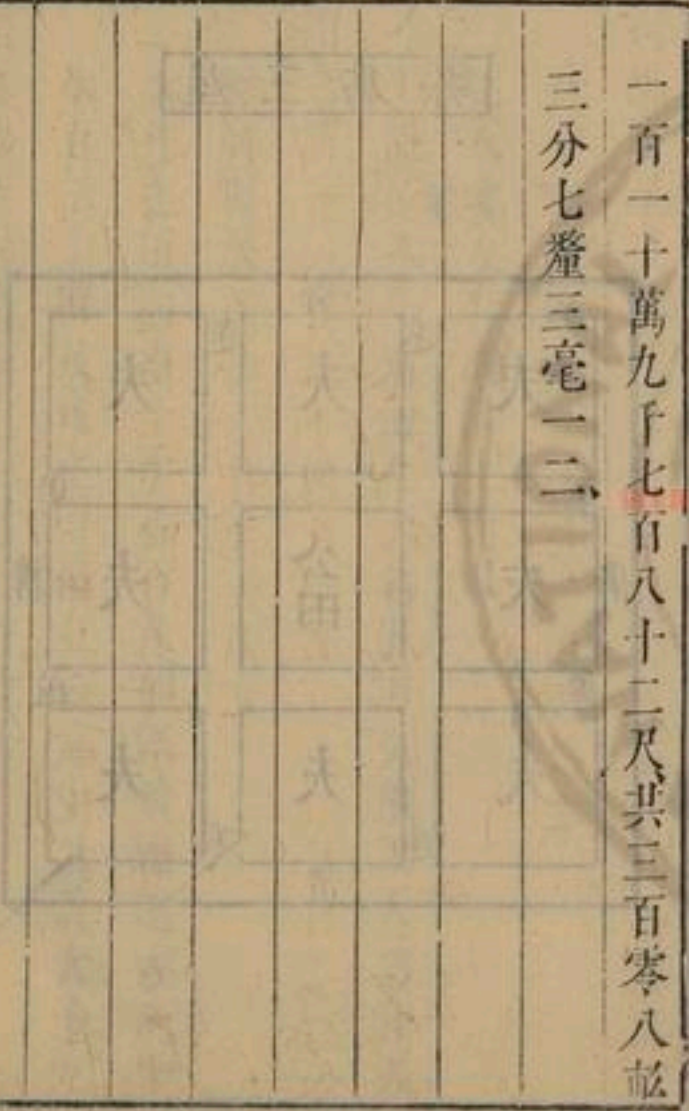 一百一十萬九千七百八十二尺共三百零八畝
三分七釐三毫一二